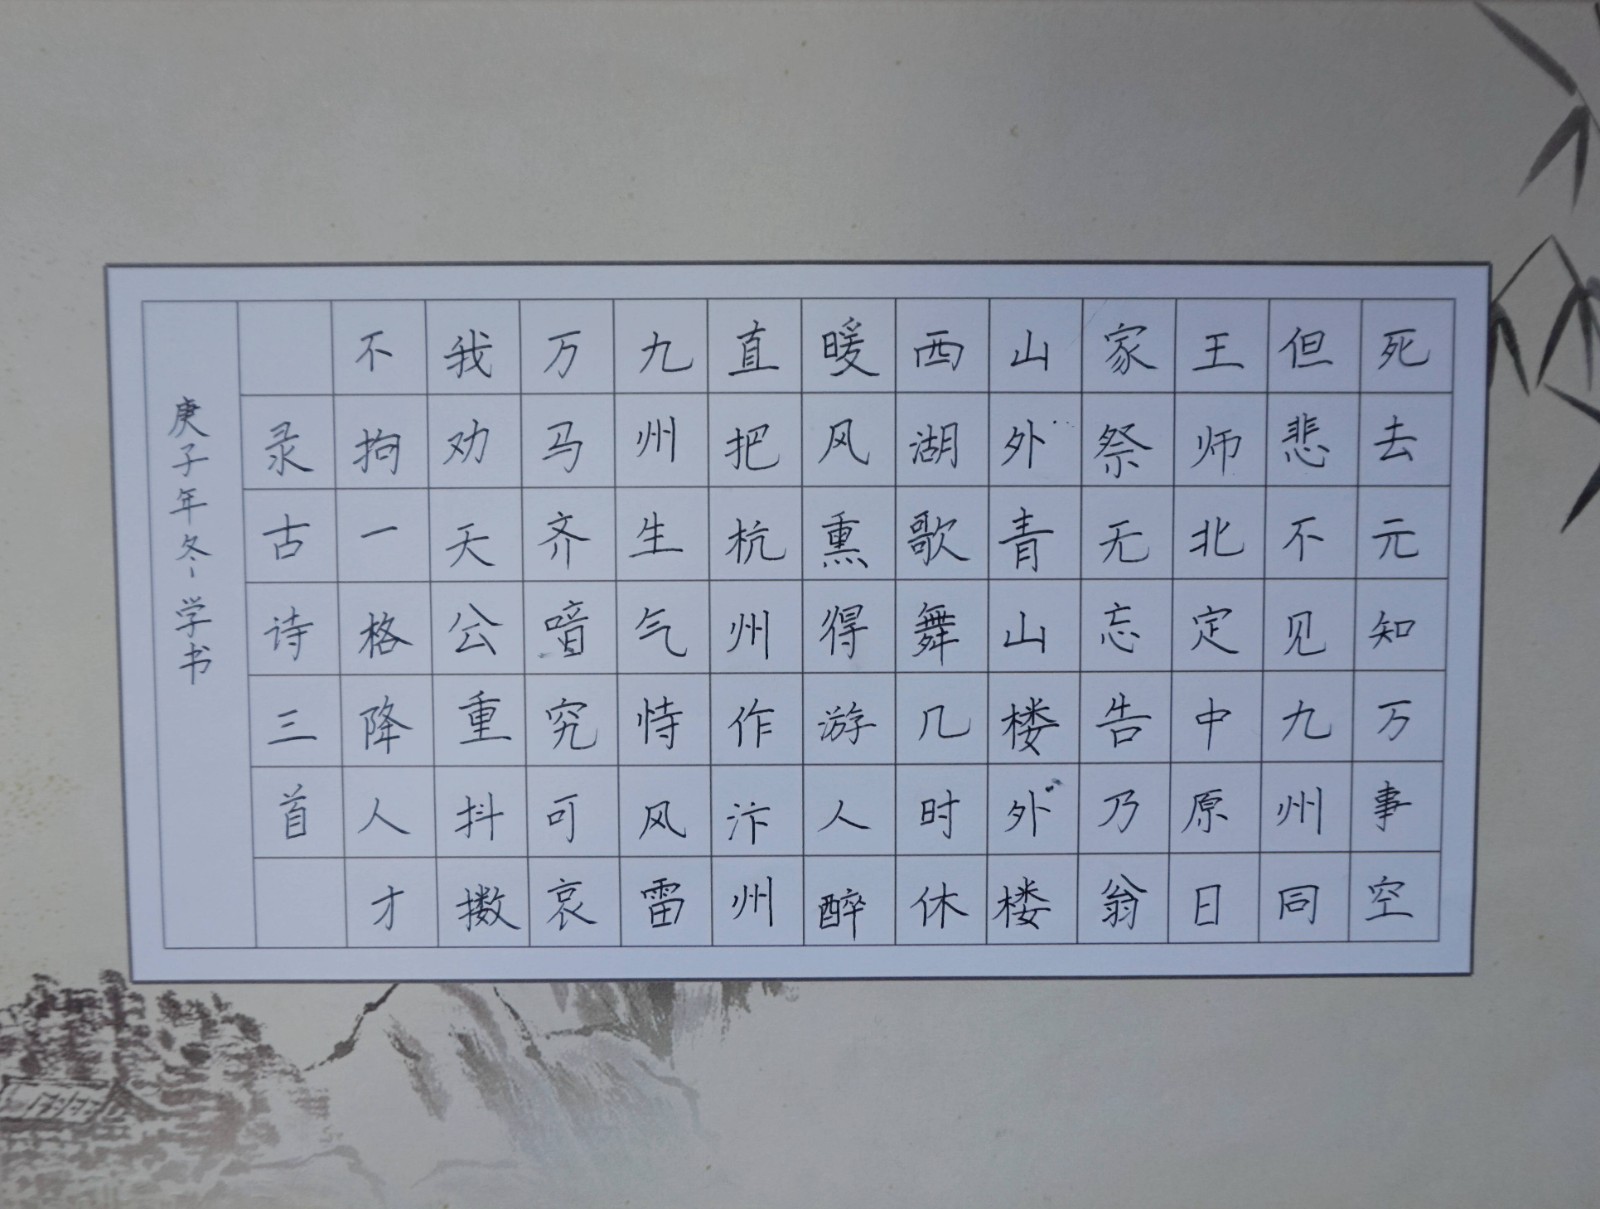 死去元知万事空
但悲不见九州同
王师北定中原日
家祭无忘告乃翁
山外青山楼外楼
西湖歌舞几时休
暖风熏得游人醉
直把杭州作汴州
九州生气恃风雷
万马齐喑究可哀
我劝天公重抖擞
不拘一格降人才
录古诗三首
庚子年冬学书